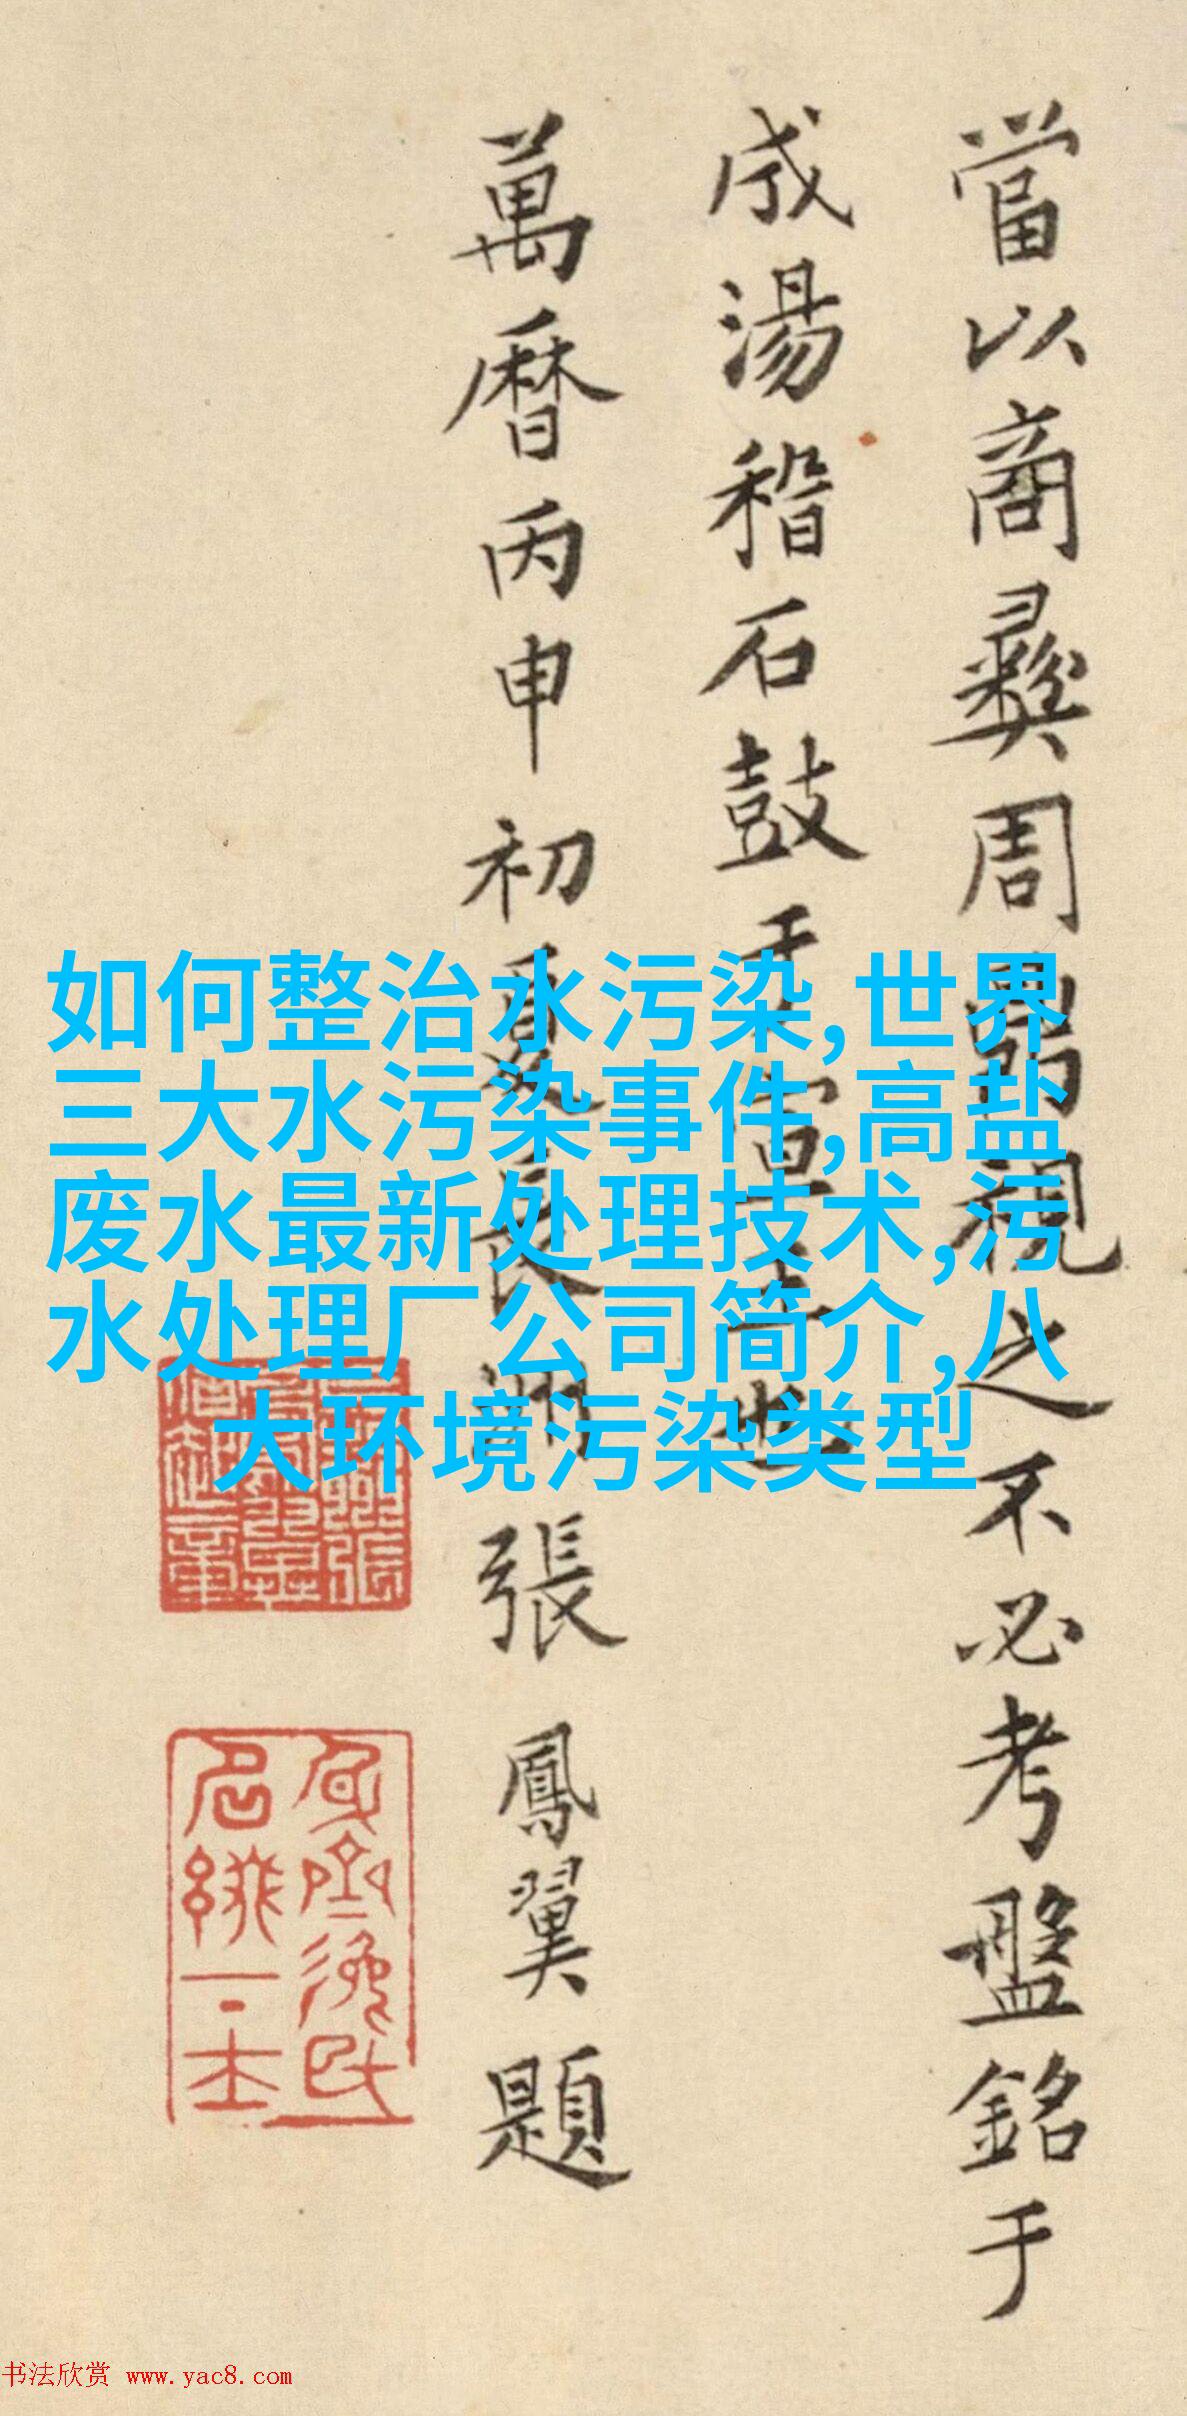 當以商彝周𠕋視之不必考盤銘于
成湯稽石鼓于宣王也
萬曆丙申初夏長洲張鳳翼題
如何整治水污染,世界
三大水污染事件,高盐
废水最新处理技术,污
水处理厂公司简介,八
大环境污染类型
书法欣赏 www.yac8.com